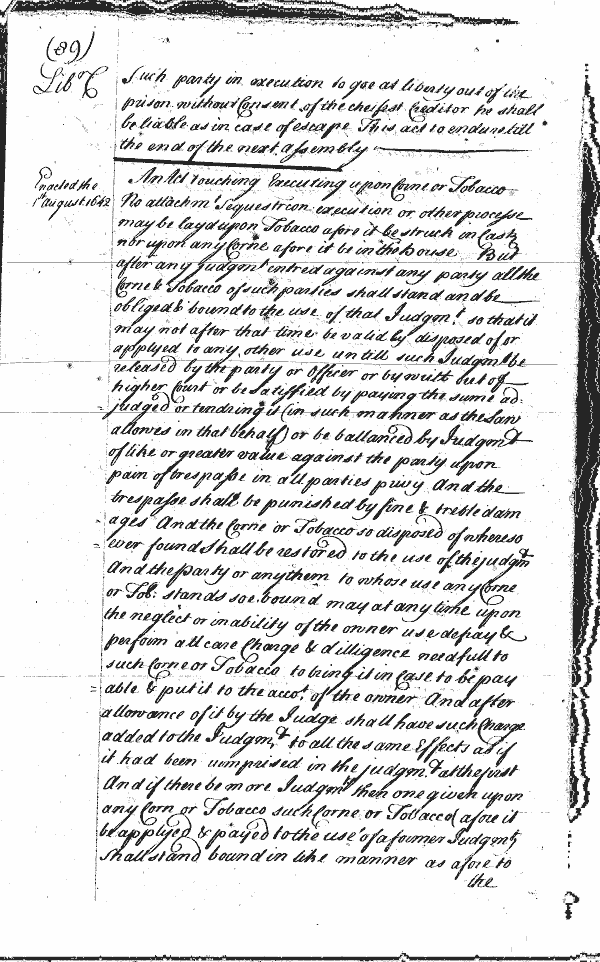 (89)
Libr C
Such party in execution to goe at liberty out of
prison without Consent of the cheifest Creditor he shall
be liable as in case of escape This act to endure till
the end of the next assembly
Enacted the
1st august 1642
An Act touching Executing upon Corne or Tobacco
No attachmt Sequestrcon execution or other processe
may be layd upon Tobacco afore it be struck in Cask
nor upon any Corne afore it be in the house But
after any Judgmt entred against any party all the
Corne & Tobacco of such parties shall stand and be
obliged & bound to the use of that Judgmt so that it
may not after that time be validly disposed of or
applyed to any other use untill such Judgmt be
released by the party or Officer or by writt out of
higher Court or be satisfied by paying the sume ad-
judged or tendring it (in such manner as the Law
allowes in that behalf) or be ballanced by Judgmt
of like or greater value against the party upon
pain of trespasse in all parties privy And the
trespasse shall be punished by fine & treble dam
ages And the Corne or Tobacco so disposed of whereso
ever found shall be restored to the use of the judgmt
And the party or any them to whose use any Corne
or Tob: stands soe bound may at any time upon
the neglect or inability of the owner use defray &
perform all care Charge & dilligence needfull to
such Corne or Tobacco to bring it in Case to be pay
able & put it to the accot of the owner And after
allowance of it by the Judge shall have such Charge
added to the Judgmt to all the same Effects as if
it had been comprised in the judgmt at the first
And if there be more Judgmts then one given upon
any Corn or Tobacco such Corne or Tobacco (afore it
be applyed & payed to the use of a former Judgmt)
shall stand bound in like manner as afore to
the